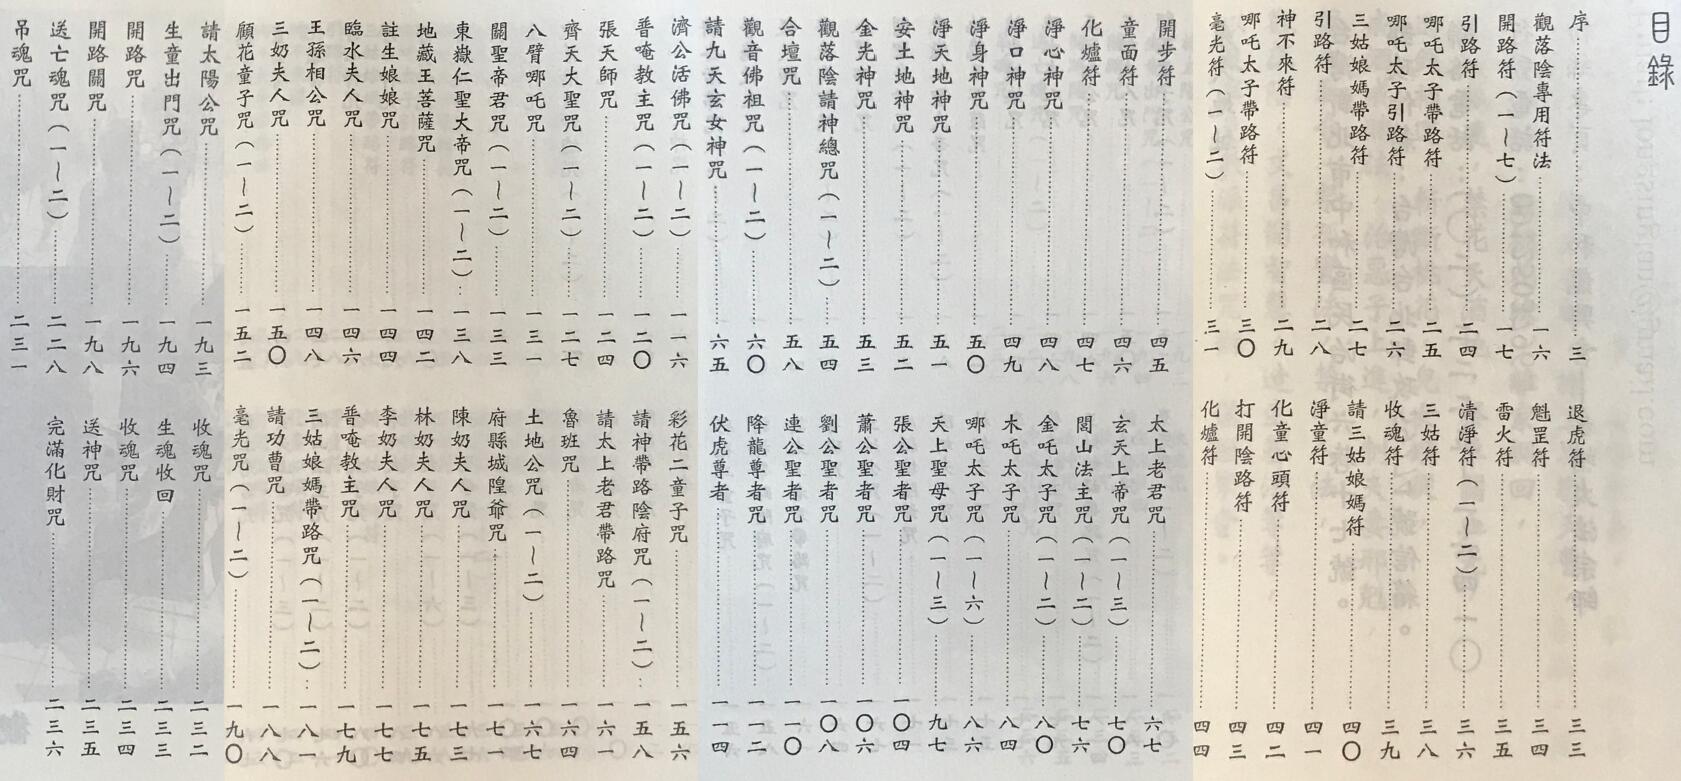 目錄
序……三
觀落陰專用符法……一六
開路符（一～七）……一七
引路符……二四
哪吒太子帶路符……二五
哪吒太子引路符……二六
三姑娘媽帶路符……二七
引路符……二八
神不來符……二九
哪吒太子帶路符……三〇
毫光符（一～二）……三一
退虎符……三三
魁罡符……三四
雷火符……三五
清淨符（一～二）……三六
三姑符……三八
收魂符……三九
請三姑娘媽符……四〇
淨童符……四一
化童心頭符……四二
打開陰路符……四三
化爐符……四四
開步符……四五
童面符……四六
化爐符……四七
淨心神咒……四八
淨口神咒……四九
淨身神咒……五〇
淨天地神咒……五一
安土地神咒……五二
金光神咒……五三
觀落陰請神總咒（一～二）……五四
合壇咒……五八
觀音佛祖咒（一～二）……六〇
請九天玄女神咒……六五
太上老君咒……六七
玄天上帝咒（一～三）……七〇
閭山法主咒（一～二）……七六
金吒太子咒（一～二）……八〇
木吒太子咒……八四
哪吒太子咒（一～六）……八六
天上聖母咒（一～三）……九七
張公聖者咒……一〇四
蕭公聖者咒……一〇六
劉公聖者咒……一〇八
連公聖者咒……一一〇
降龍尊者咒……一一二
伏虎尊者……一一四
濟公活佛咒（一～二）……一一六
普唵教主咒（一～二）……一二〇
張天師咒……一二四
齊天大聖咒（一～二）……一二七
八臂哪吒咒……一三一
關聖帝君咒（一～二）……一三三
東嶽仁聖大帝咒（一～二）……一三八
地藏王菩薩咒……一四二
註生娘娘咒……一四四
臨水夫人咒……一四六
王孫相公咒……一四八
三奶夫人咒……一五〇
顧花童子咒（一～二）……一五二
彩花二童子咒……一五六
請神帶路陰府咒（一～二）……一五八
請太上老君帶路咒……一六一
魯班咒……一六四
土地公咒（一～二）……一六七
府縣城隍爺咒……一七一
陳奶夫人咒……一七三
林奶夫人咒……一七五
李奶夫人咒……一七七
普唵教主咒……一七九
三姑娘媽帶路咒（一～二）……一八一
請功曹咒……一八八
毫光咒（一～二）……一九〇
請太陽公咒……一九三
生童出門咒（一～二）……一九四
開路咒……一九六
開路關咒……一九八
送亡魂咒（一～二）……二二八
吊魂咒……二三一
收魂咒……二三二
生魂收回……二三三
收魂咒……二三四
送神咒……二三五
完滿化財咒……二三六